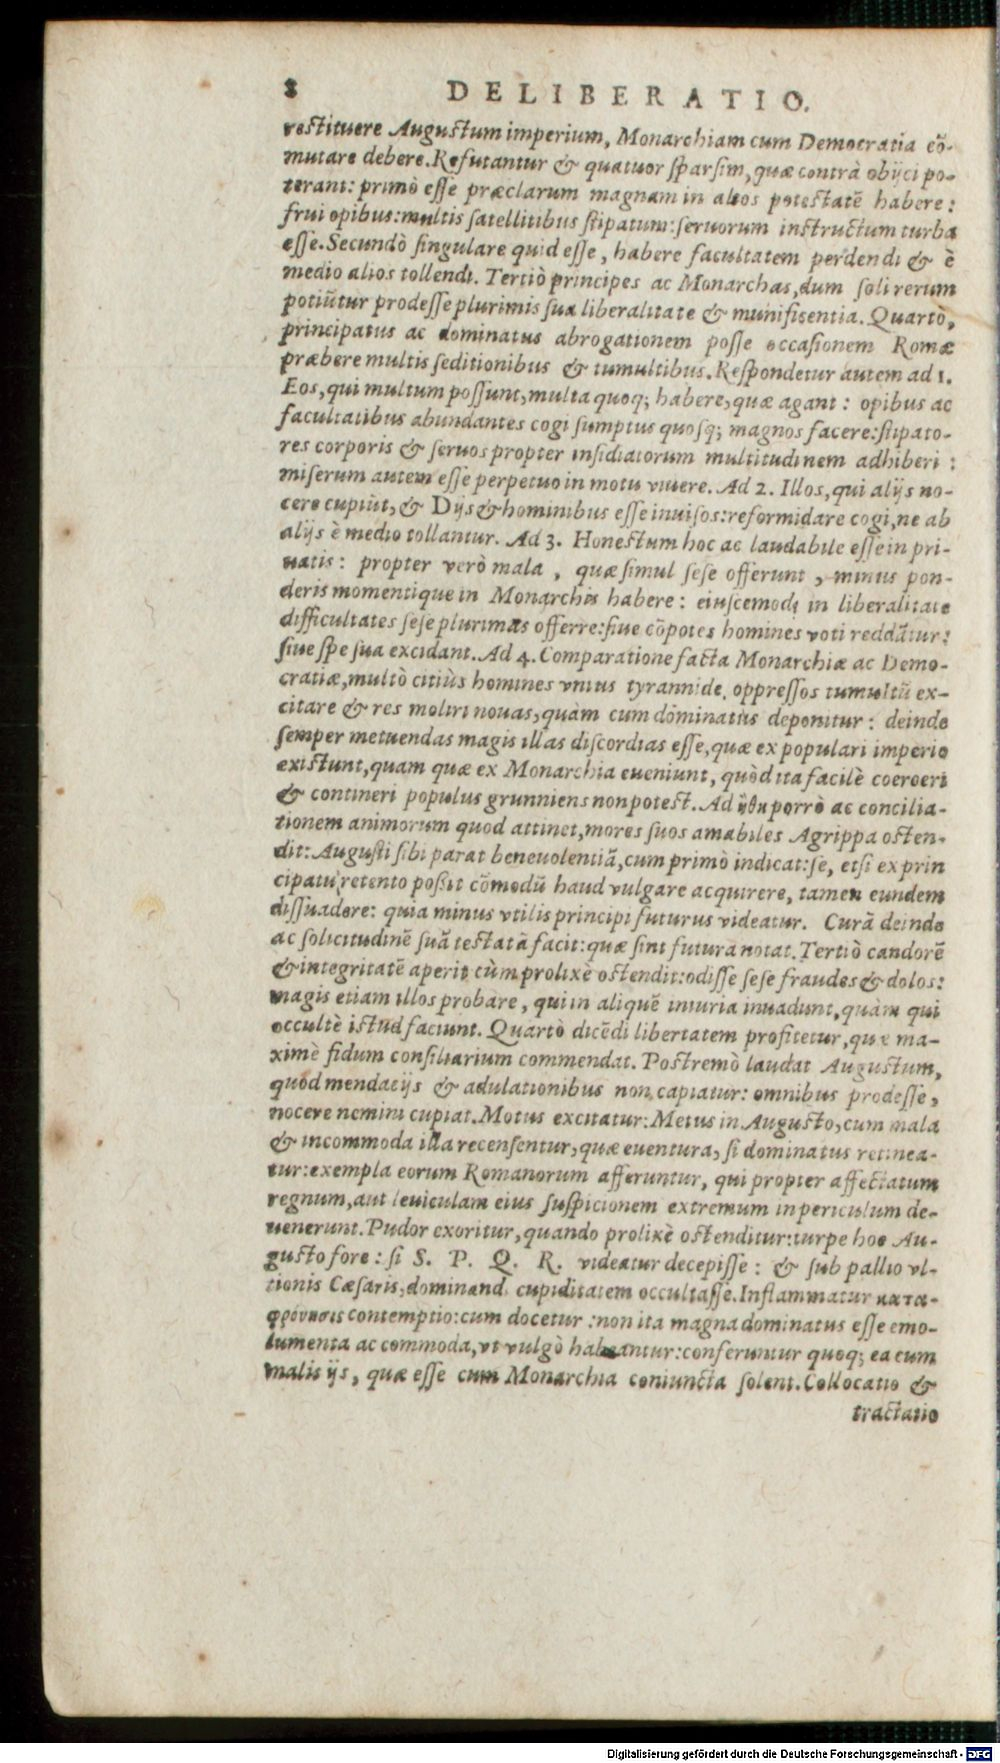 8 DELIBERATIO.
restituere Augustum imperium, Monarchiam cum Democratia cō-
mutare debere. Refutantur & quatuor sparsim, quæ contrà obijci po-
terant: primò esse præclarum magnam in alios potestatē habere:
frui opibus: multis satellitibus stipatum: seruorum instructum turba
esse. Secundò singulare quid esse, habere facultatem perdendi & è
medio alios tollendi. Tertiò principes ac Monarchas, dum soli rerum
potiūtur prodesse plurimis sua liberalitate & munificentia. Quartò,
principatus ac dominatus abrogationem posse occasionem Romæ
præbere multis seditionibus & tumultibus. Respondetur autem ad 1.
Eos, qui multum possunt, multa quoq; habere, quæ agant: opibus ac
facultatibus abundantes cogi sumptus quosq; magnos facere: stipato-
res corporis & seruos propter insidiatorum multitudinem adhiberi:
miserum autem esse perpetuo in motu viuere. Ad 2. Illos, qui alijs no-
cere cupiūt, & Dijs & hominibus esse inuisos: reformidare cogi, ne ab
alijs è medio tollantur. Ad 3. Honestum hoc ac laudabile esse in pri-
uatis: propter verò mala, quæ simul sese offerunt, minus pon-
deris momentique in Monarchis habere: eiuscemodi in liberalitate
difficultates sese plurimas offerre: siue cōpotes homines voti reddātur:
siue spe sua excidant. Ad 4. Comparatione facta Monarchiæ ac Demo-
cratiæ, multò citiùs homines vnius tyrannide oppressos tumultū ex-
citare & res moliri nouas, quàm cum dominatus deponitur: deinde
semper metuendas magis illas discordias esse, quæ ex populari imperio
existunt, quam quæ ex Monarchia eueniunt, quòd ita facilè coerceri
& contineri populus grunniens non potest. Ad ἤθη porrò ac concilia-
tionem animorum quod attinet, mores suos amabiles Agrippa osten-
dit: Augusti sibi parat beneuolentiā, cum primò indicat: se, etsi ex prin
cipatu retento possit cōmodū haud vulgare acquirere, tamen eundem
dissuadere: quia minus vtilis principi futurus videatur. Curā deinde
ac solicitudinē suā testatā facit: quæ sint futura notat. Tertiò candorē
& integritatē aperit cùm prolixè ostendit: odisse sese fraudes & dolos:
magis etiam illos probare, qui in aliquē iniuria inuadunt, quàm qui
occultè istud faciunt. Quartò dicēdi libertatem profitetur, quæ ma-
ximè fidum consiliarium commendat. Postremò laudat Augustum,
quòd mendacijs & adulationibus non capiatur: omnibus prodesse,
nocere nemini cupiat. Motus excitatur: Metus in Augusto, cum mala
& incommoda illa recensentur, quæ euentura, si dominatus retinea-
tur: exempla eorum Romanorum afferuntur, qui propter affectatum
regnum, aut leuiculam eius suspicionem extremum in periculum de-
uenerunt. Pudor exoritur, quando prolixè ostenditur: turpe hoc Au-
gusto fore: si S. P. Q. R. videatur decepisse: & sub pallio vl-
tionis Cæsaris, dominandi cupiditatem occultasse. Inflammatur κατα-
φρόνησις contemptio: cum docetur: non ita magna dominatus esse emo-
lumenta ac commoda, vt vulgò habeantur: conferuntur quoq; ea cum
malis ijs, quæ esse cum Monarchia coniuncta solent. Collocatio &
tractatio
Digitalisierung gefördert durch die Deutsche Forschungsgemeinschaft - DFG